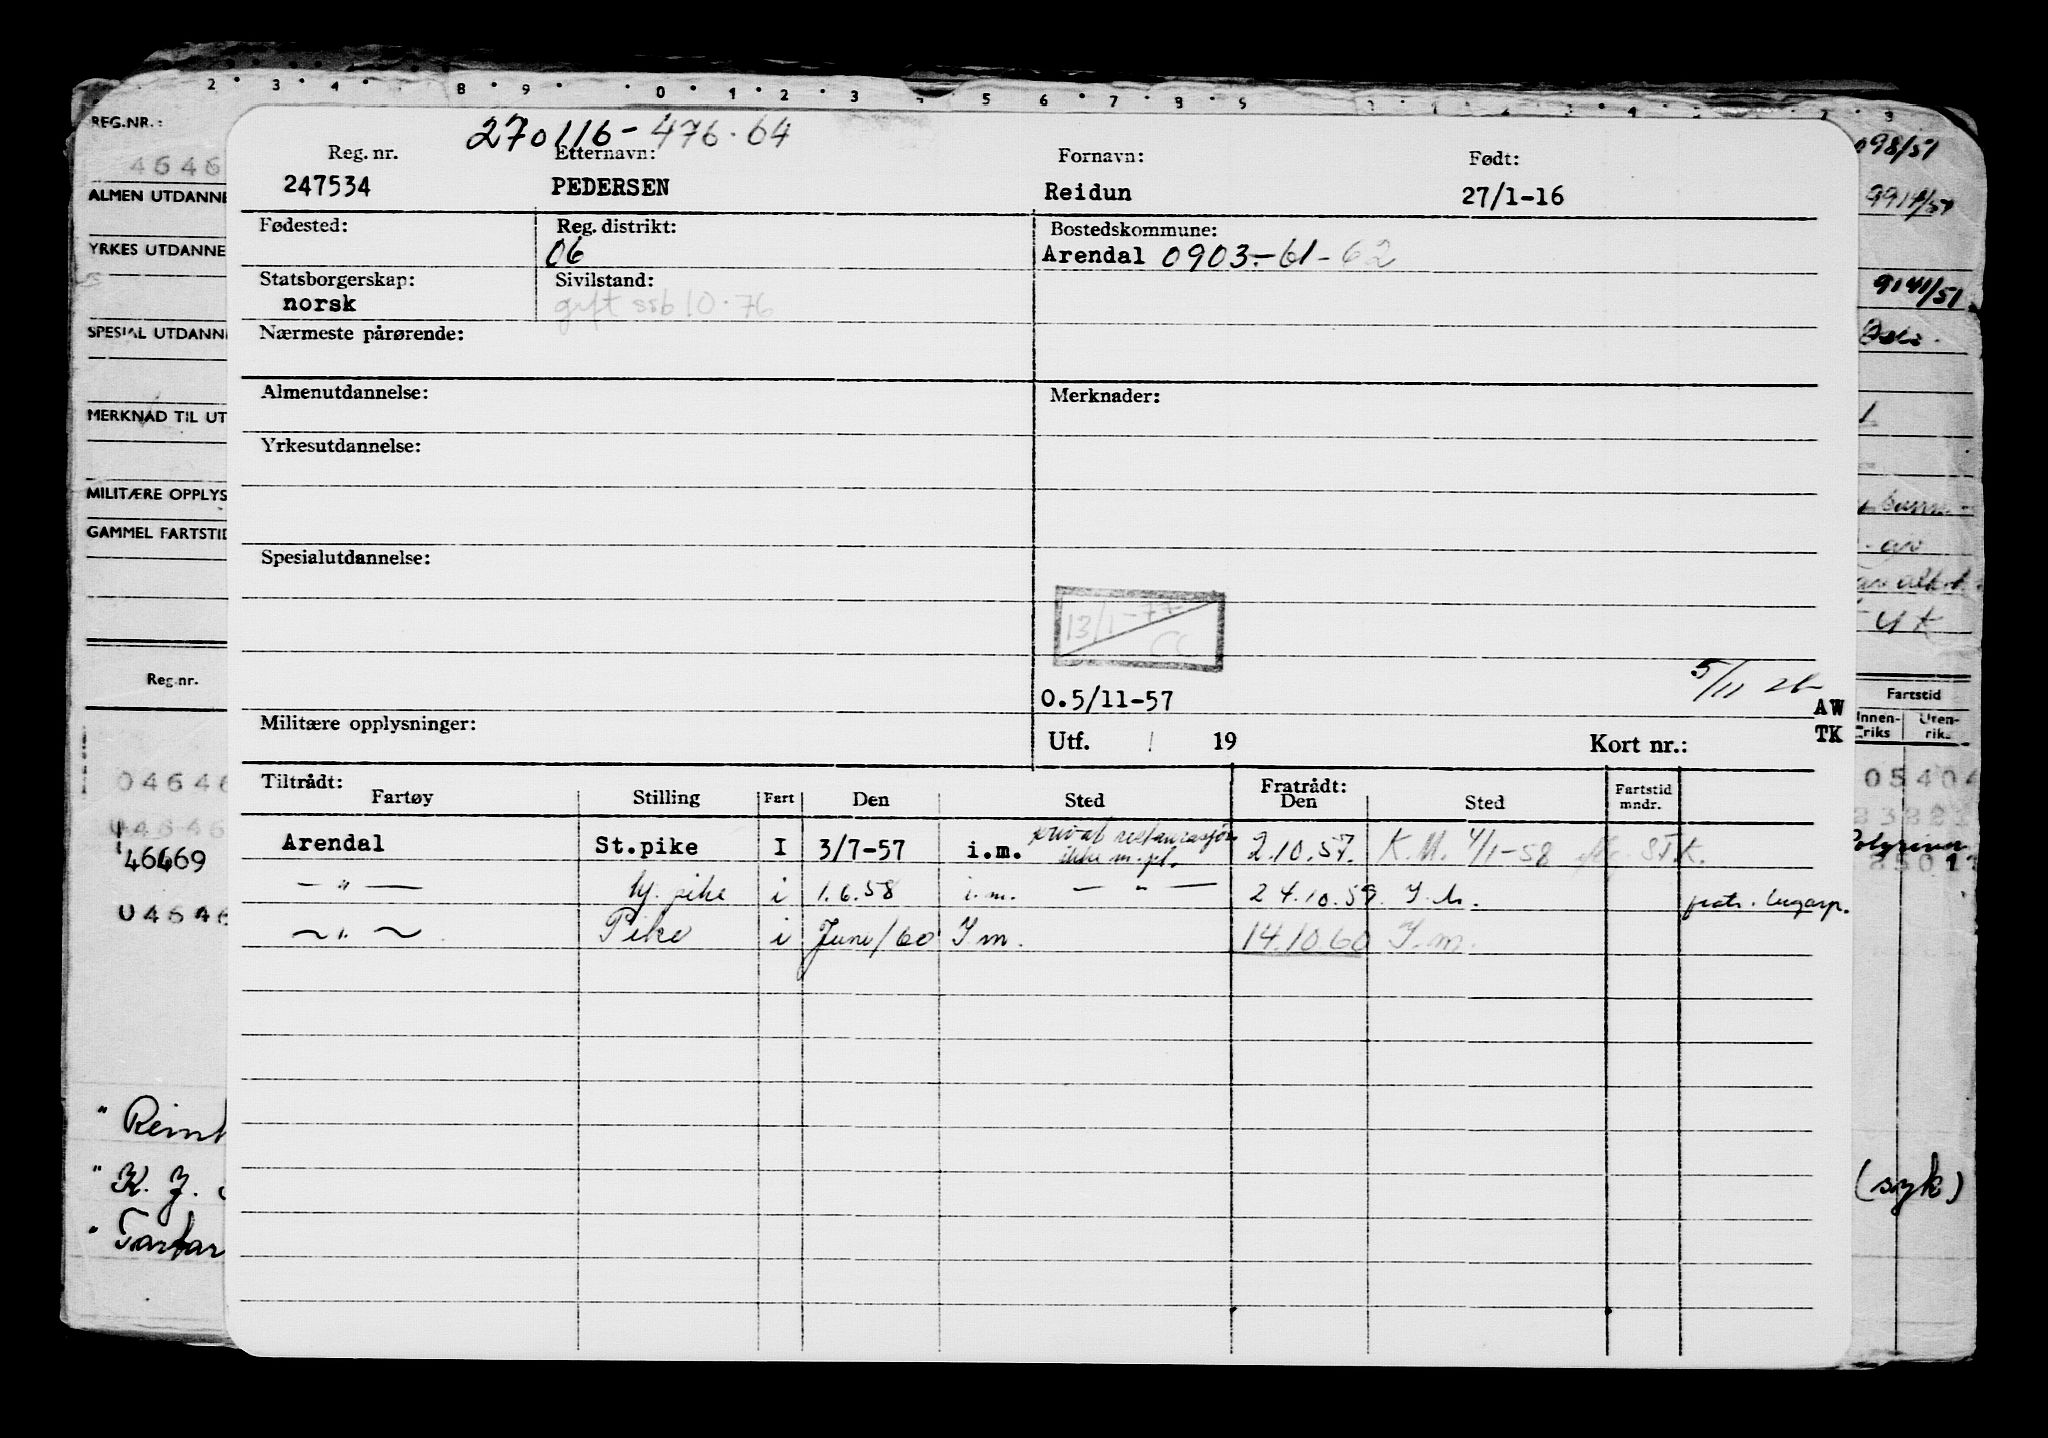 2 3 4 8 9 0 1 2 3 5 6 7 8 9
REG.NR.:
4646
ALMEN UTDANNE
YRKES UTDANNE
SPESIAL UTDANN
MERKNAD TIL UT
MILITÆRE OPPLYS
GAMMEL FARTSTID
Reg.nr.
04646
04646
46469
04646
" Reint
" K. J.
" Tartar
270116-476.64
Reg. nr. Etternavn: Fornavn: Født:
247534 PEDERSEN Reidun 27/1-16
Fødested: Reg. distrikt: Bostedskommune:
06 Arendal 0903.-61-62
Statsborgerskap: Sivilstand:
norsk gift ssb 10.76
Nærmeste pårørende:
Almenutdannelse: Merknader:
Yrkesutdannelse:
Spesialutdannelse:
13/1-77
CC
5/11
O.5/11-57
AW
Militære opplysninger: Utf. / 19 Kort nr.: TK
Tiltrådt: Fratrådt:
Fartøy Stilling Fart Den Sted Den Sted Fartstid mndr.
privat restaurasjon
Arendal St.pike I 3/7-57 i.m. ikke m.pl. 2.10.57. K.M. 4/1-58 STK.
— " — lg. pike i 1.6.58 i.m. — " — 24.10.59. I.m. fratr. lugarp.
— " — Pike i Juni/60 I m. 14.10.60 I.m.
098/51
9914/51
9141/51
Oslo.
4 K
Fartstid
Innen-riks Uten-riks
05404
(syk)